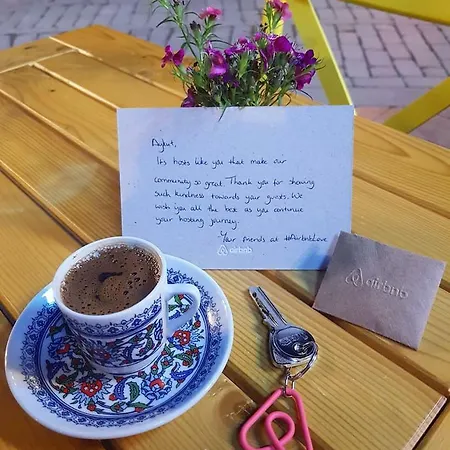 Aykut,
Its hosts like you that make our
community so great. Thank you for showing
such kindness towards your guests. We
wish you all the best as you continue
your hosting journey.
Your friends at #AirbnbLove
airbnb
airbnb